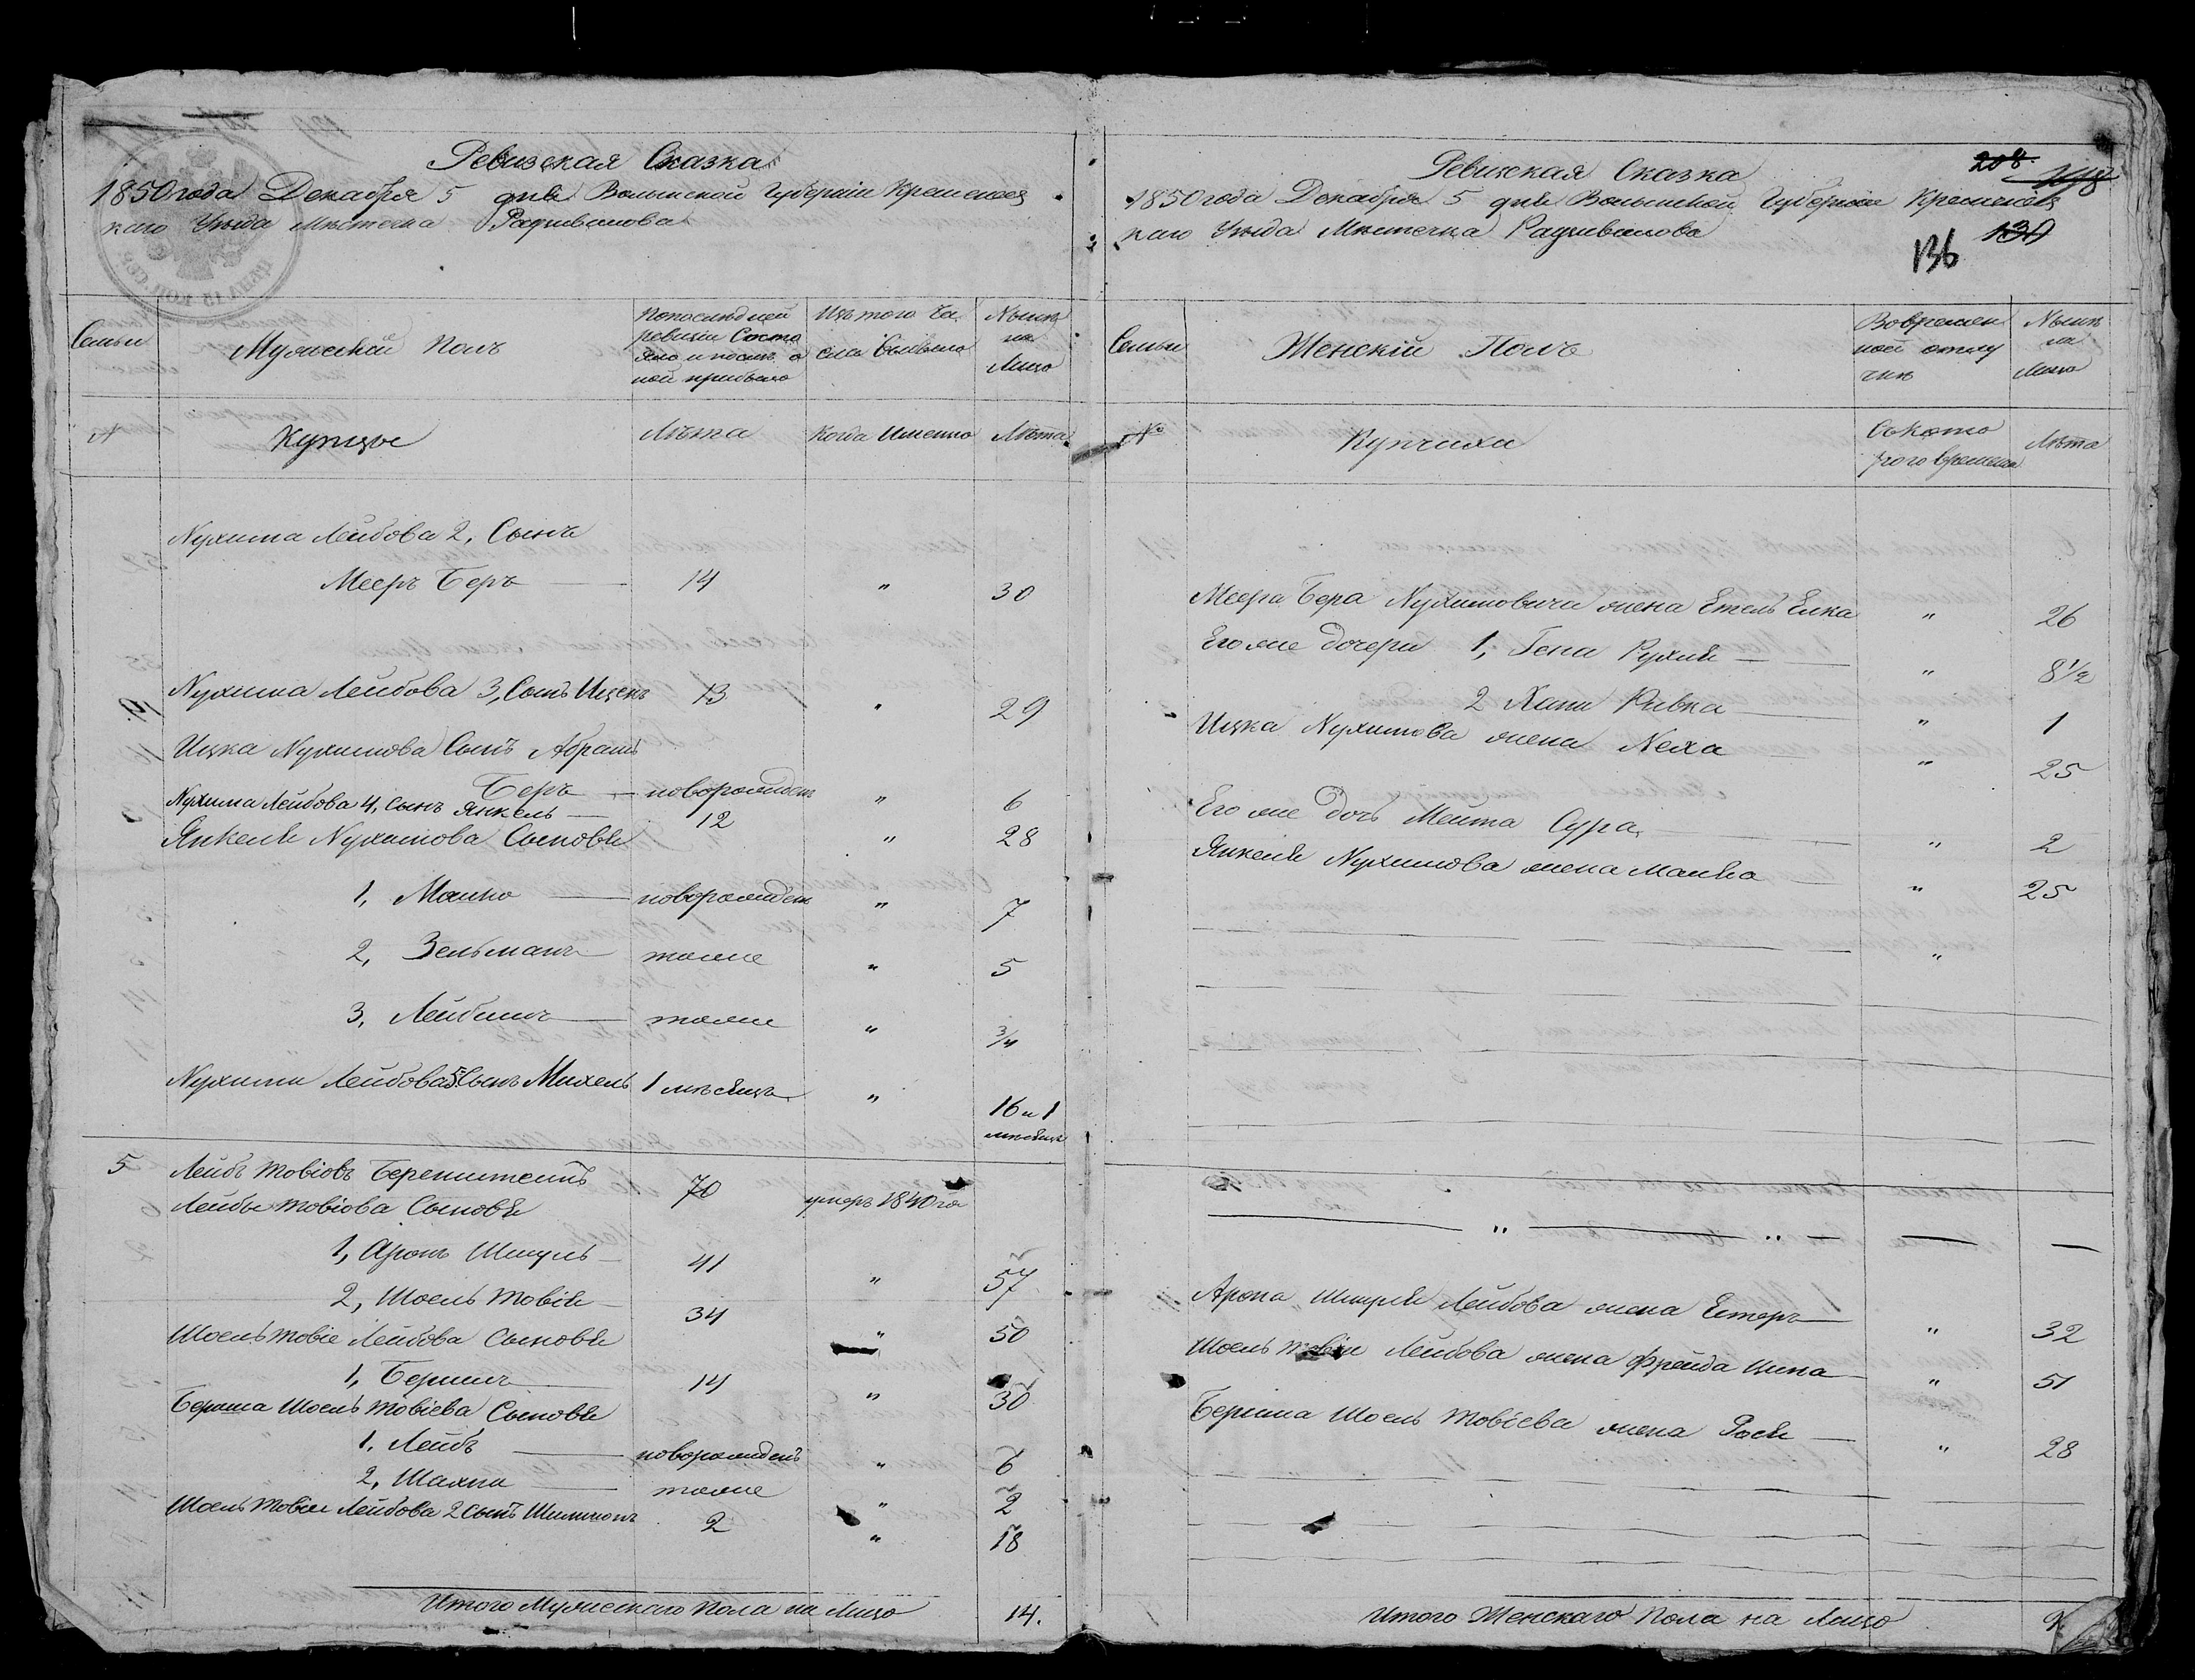 Ревизская Сказка
1850 года Декабря 5 дня Волынской Губерніи Кременец
каго Уѣзда Мѣстечка Радзивилова
Семьи
Мужескій Полъ
По послѣдней
ревизіи Состо
яло и послѣ о
ной прибыло
Изъ того Чи
сла Выбыло
Нынѣ
на
Лицо
№
Купцы
Лѣта
Когда Именно
Лѣта
Нухима Лейбова 2, Сынъ
Мееръ Беръ 14 " 30
Нухима Лейбова 3, Сынъ Ицекъ 13 " 29
Ицка Нухимова Сынъ Абрамъ
Беръ новорожденъ " 6
Нухима Лейбова 4, Сынъ Янкель 12 " 28
Янкеля Нухимова Сыновья
1, Манко новорожденъ " 7
2, Зельманъ тоже " 5
3, Лейбишъ тоже " 3/4
Нухима Лейбова 5 Сынъ Михель 1 мѣсяца " 16 и 1
мѣсяца
5 Лейбъ Товіовъ 70 умеръ 1840 го
Лейбы Товіова Сыновья
1, Аронъ Шмуль 41 " 57
2, Шоель Товія 34 " 50
Шоель Товіе Лейбова Сыновья
1, Беришъ 14 " 30
Бериша Шоель Товіева Сыновья
1, Лейбъ новорожденъ " 6
2, Шахна тоже " 2
Шоель Товіи Лейбова 2 Сынъ Шимшонъ 2 " 18
Итого Мужескаго Пола на Лицо 14.
Ревизская Сказка
208
1850 года Декабря 5 дня Волынской Губерніи Кременец
каго Уѣзда Мѣстечка Радзивилова
136
Семьи
Женскій Полъ
Во времен
ной отлу
чкѣ
Нынѣ
на
Лицо
№
Купчихи
Съ Кото
рого времени
Лѣта
Меера Бера Нухимовича жена Етель Елка " 26
Его же дочери 1, Гена Рухля " 8 1/2
2 Хана Ривка " 1
Ицка Нухимова жена Неха " 25
Его же Дочь Мейта Сура " 2
Янкеля Нухимова жена Малка " 25
"
" "
Арона Шмуля Лейбова жена Естеръ " 32
Шоель Товіи Лейбова жена Фрейда Цина " 51
Бериша Шоель Товіева жена Рося " 28
Итого Женскаго Пола на Лицо 9